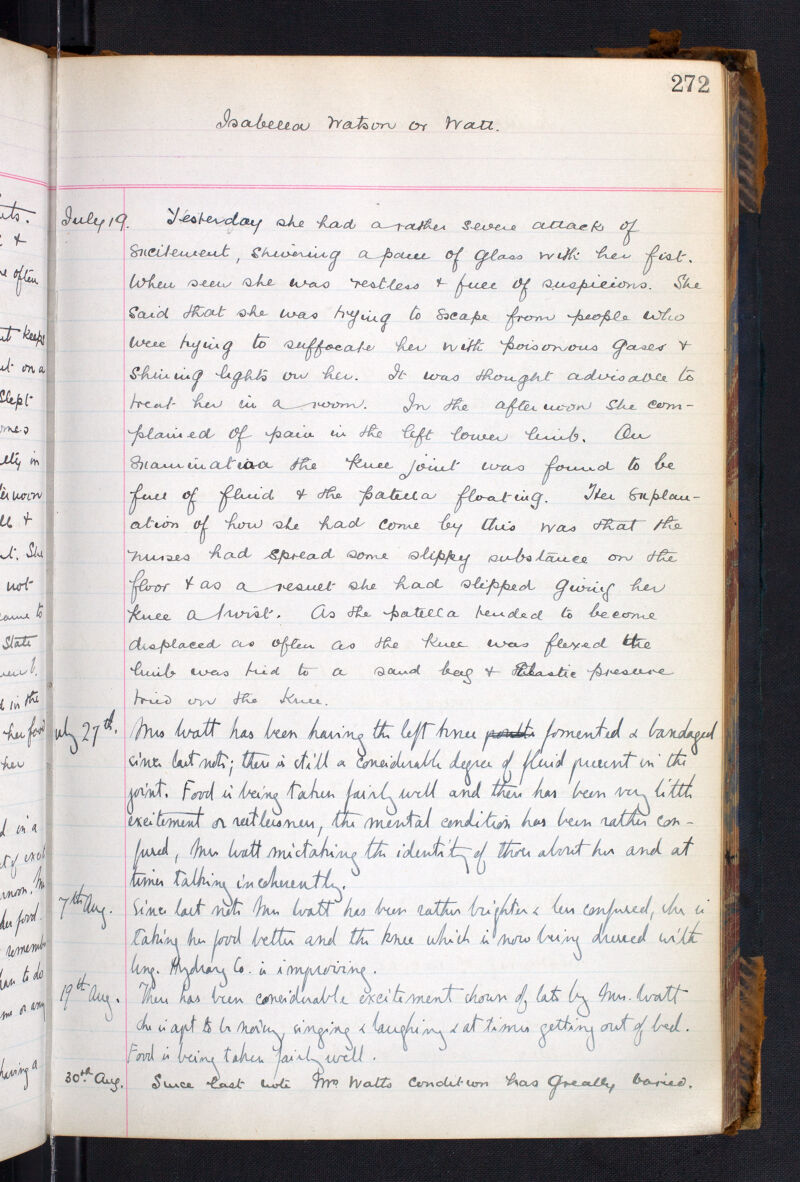 272
Isabella Watson or Watt.
July 19. Yesterday she had a rather severe attack of
excitement, shivering a pane of glass with her fist.
When seen she was restless & full of suspicions. She
said that she was trying to escape from people who
were trying to suffocate her with poisonous gases &
shining lights on her. It was thought advisable to
treat her in a room. In the afternoon she com-
plained of pain in the left lower limb. On
examination the knee joint was found to be
full of fluid & the patella floating. Her explan-
ation of how she had come by this was that the
nurses had spread some slippy substance on the
floor & as a result she had slipped giving her
knee a twist. As the patella tended to become
displaced as often as the knee was flexed the
limb was tied to a sand bag & Elastic pressure
tried on the knee.
July 27th. Mrs Watt has been having the left knee fomented & bandaged
since last note; there is still a considerable degree of fluid present in the
joint. Food is being taken fairly well and there has been very little
excitement or restlessness, the mental condition has been rather con-
fused, Mrs Watt mistaking the identity of those about her and at
times talking incoherently.
7th Aug. Since last note Mrs Watt has been rather brighter & less confused, she is
taking her food better and the knee which is now being dressed with
Ung. Hydrarg Co. is improving.
19th Aug. There has been considerable excitement shown of late by Mrs. Watt
she is apt to be noisy, singing & laughing & at times getting out of bed.
Food is being taken fairly well.
30th Aug. Since last note Mrs Watts condition has greatly varied.